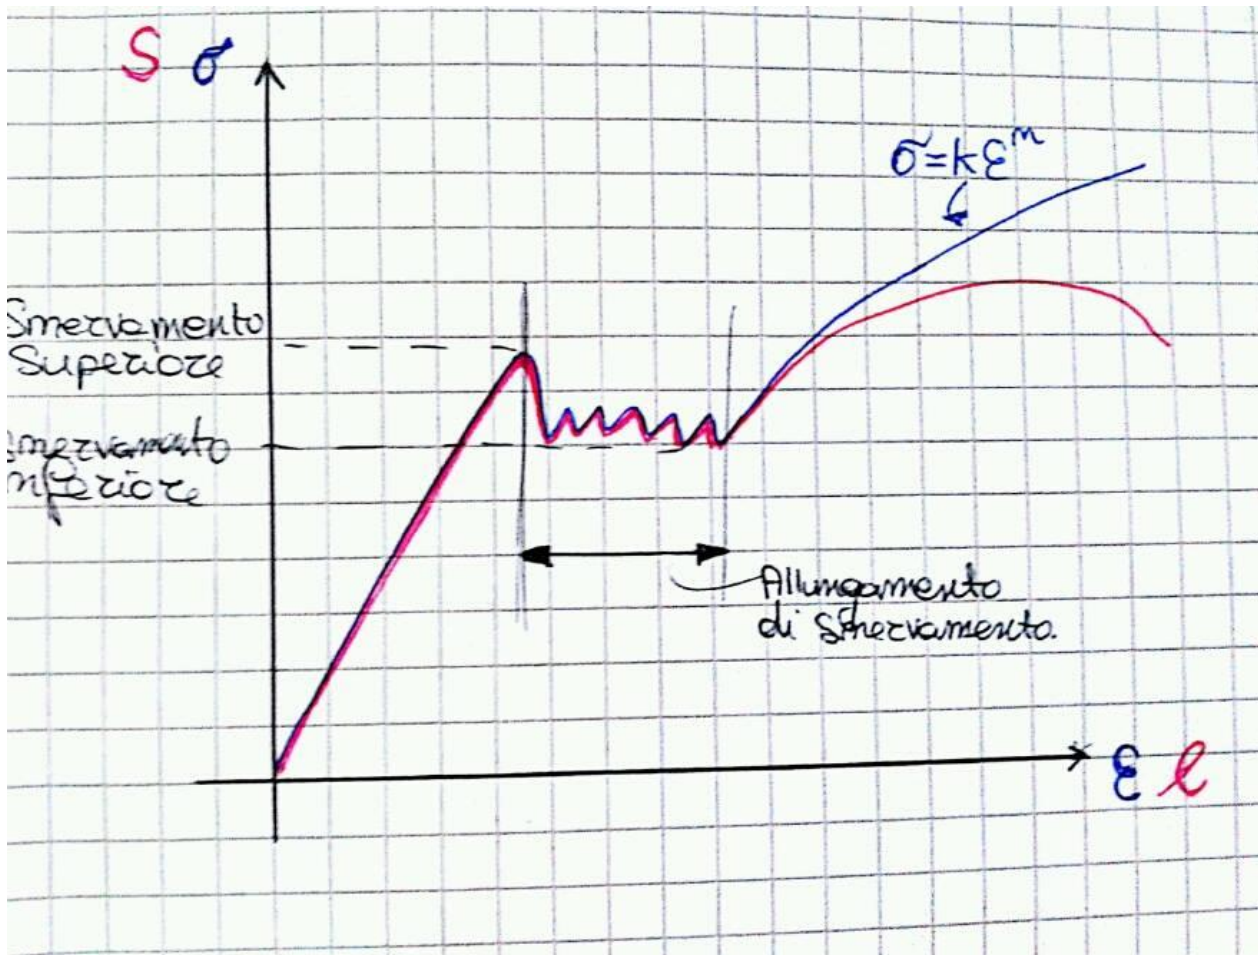 S σ
σ=kε^n
Snervamento
Superiore
nervamento
nferiore
Allungamento
di Snervamento.
ε e